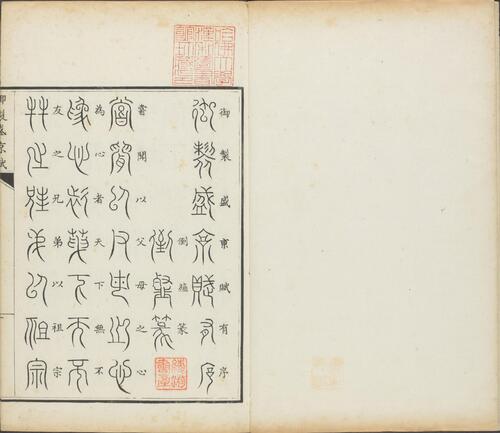 御製盛京賦有序
倒薤篆
嘗聞以父母之心
為心者天下無不
友之兄弟以祖宗
御製盛京賦